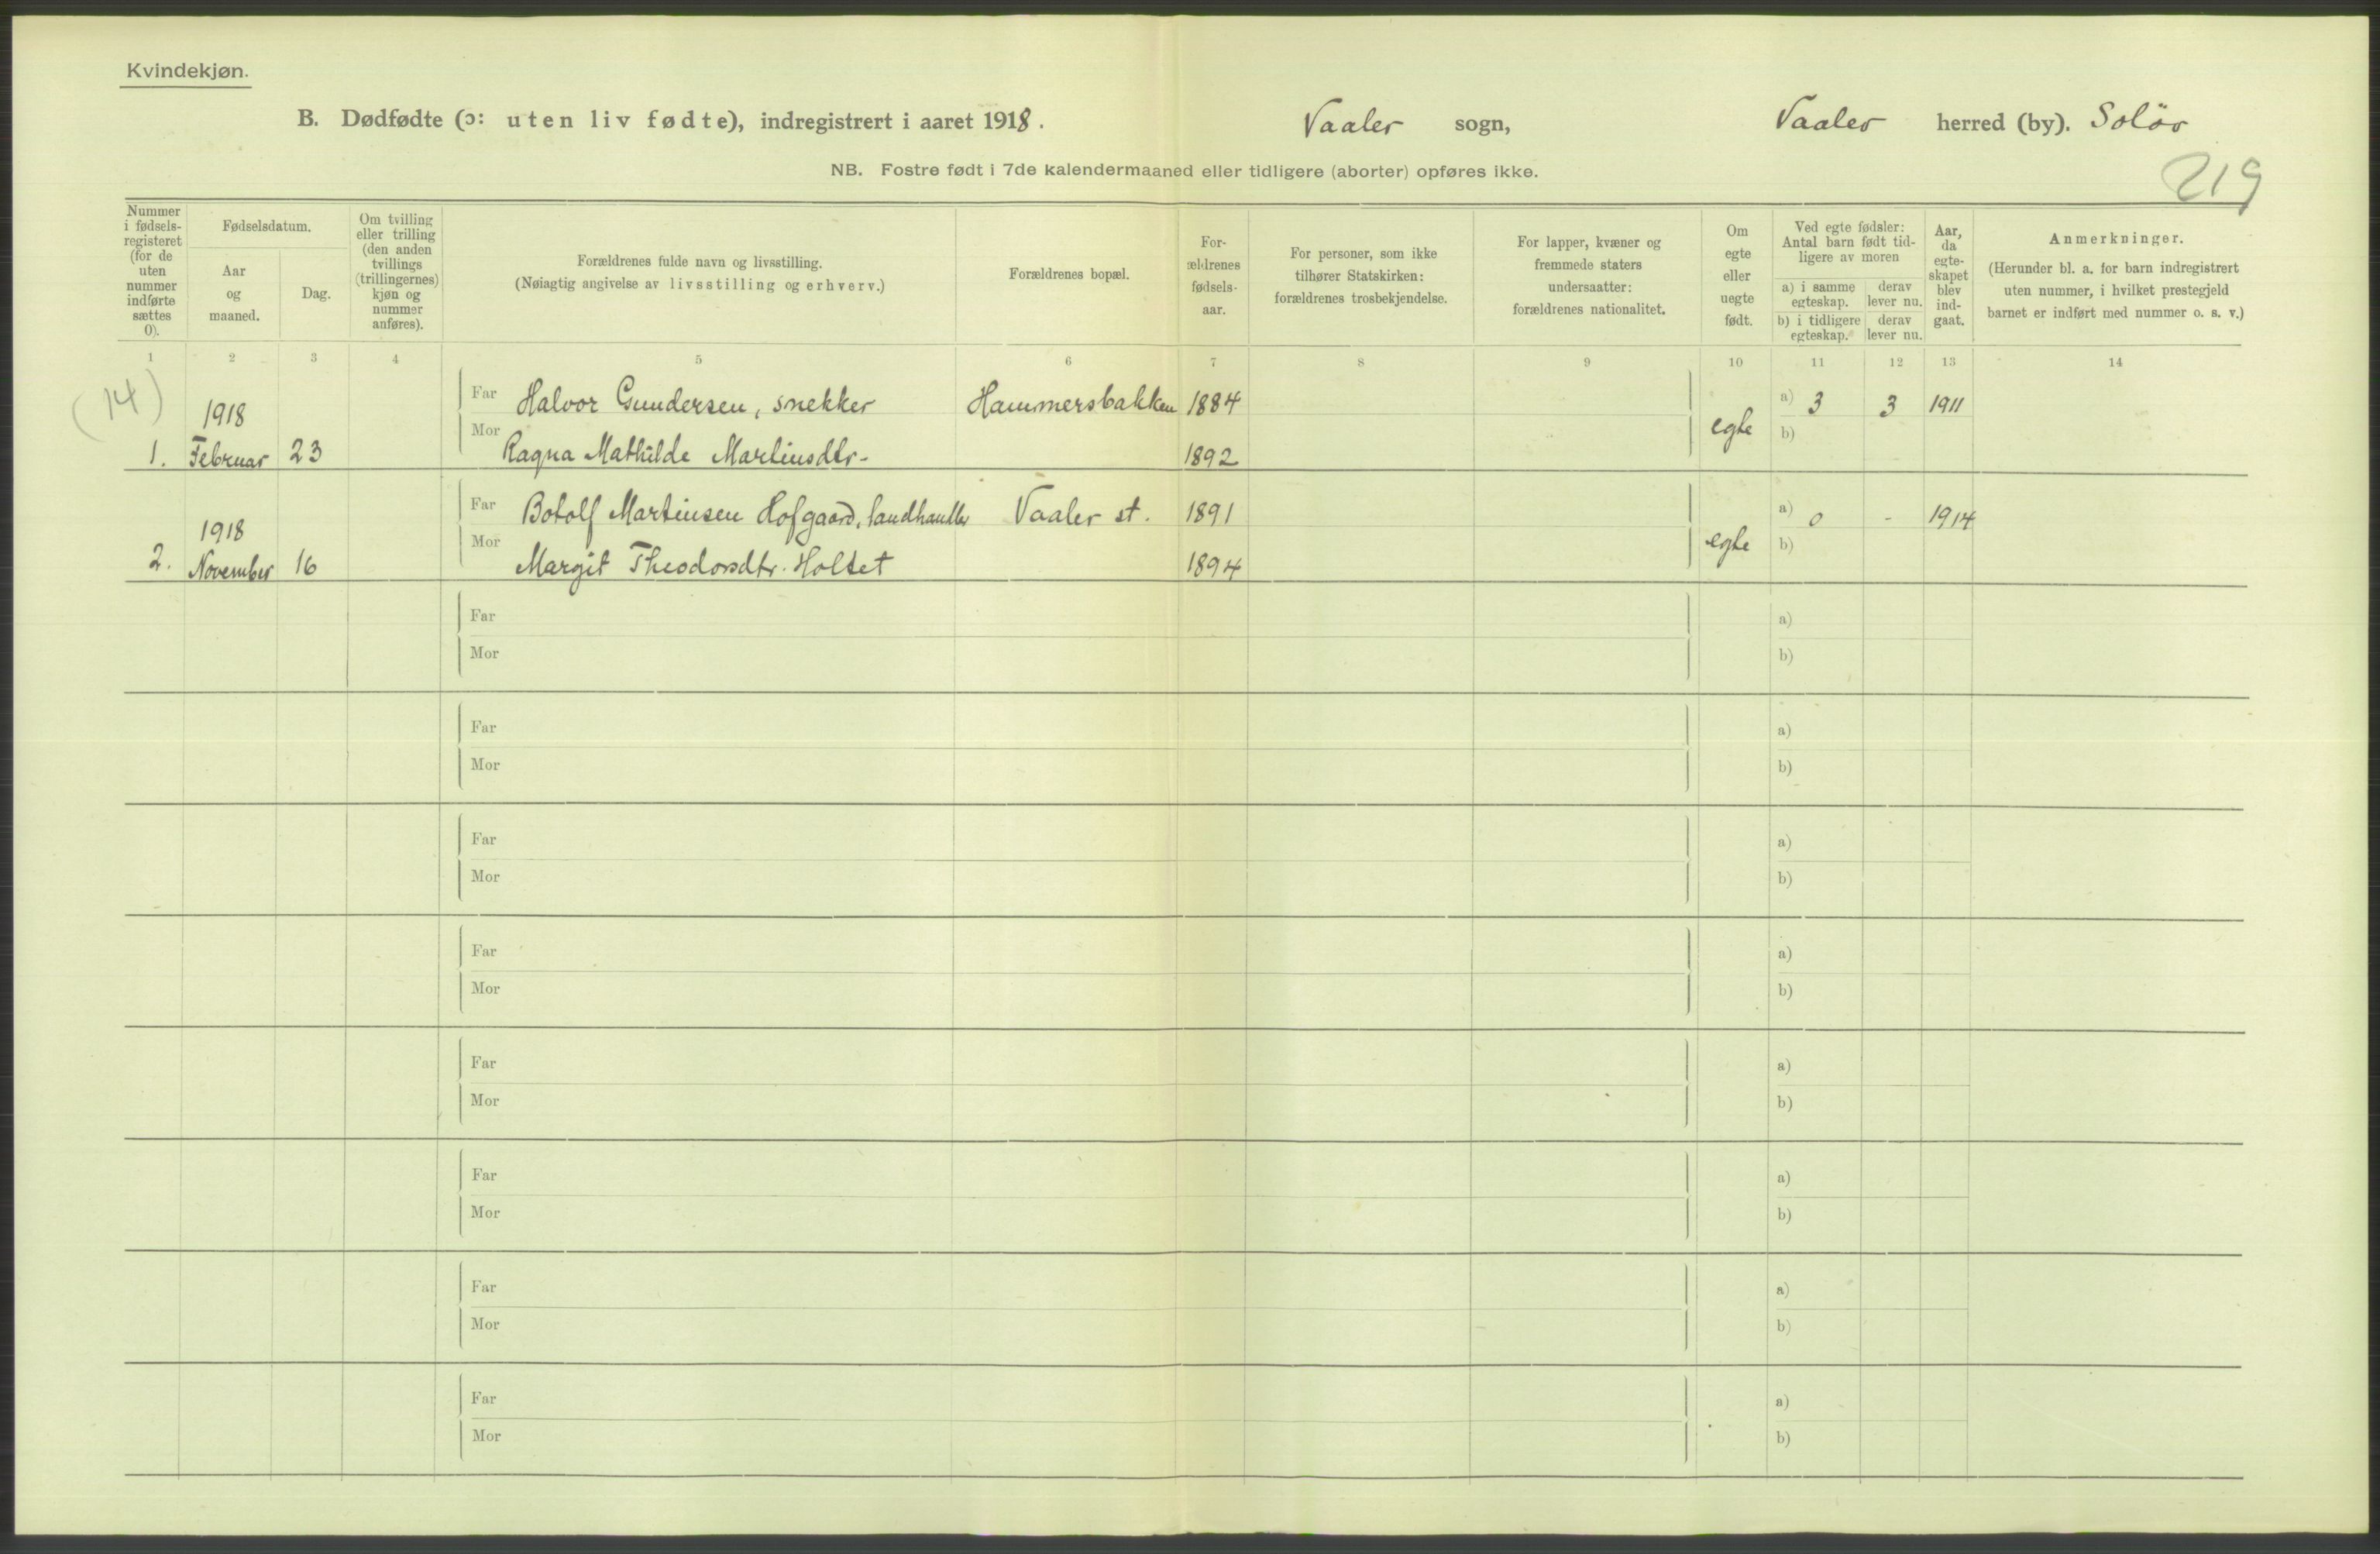 Kvindekjøn.
B. Dødfødte (ɔ: uten liv fødte), indregistrert i aaret 1918. Vaaler sogn, Vaaler herred (by). Solør
NB. Fostre født i 7de kalendermaaned eller tidligere (aborter) opføres ikke.
219
Nummer i fødsels-registeret (for de uten nummer indførte sættes 0).
Fødselsdatum.
Aar og maaned.
Dag.
Om tvilling eller trilling (den anden tvillings (trillingernes) kjøn og nummer anføres).
Forældrenes fulde navn og livsstilling.
(Nøiagtig angivelse av livsstilling og erhverv.)
Forældrenes bopæl.
For-ældrenes fødsels-aar.
For personer, som ikke tilhører Statskirken: forældrenes trosbekjendelse.
For lapper, kvæner og fremmede staters undersaatter: forældrenes nationalitet.
Om egte eller uegte født.
Ved egte fødsler: Antal barn født tid-ligere av moren
a) i samme egteskap. derav lever nu.
b) i tidligere egteskap. derav lever nu.
Aar, da egte-skapet blev ind-gaat.
Anmerkninger.
(Herunder bl. a. for barn indregistrert uten nummer, i hvilket prestegjeld barnet er indført med nummer o. s. v.)
1 2 3 4 5 6 7 8 9 10 11 12 13 14
(14)
1918 Far Halvor Gundersen, snekker Hammersbakken 1884 egte a) 3 3 1911
1. Februar 23 Mor Ragna Mathilde Martinsdtr. 1892 b)
1918 Far Botolf Martinsen Hofgaard, landhandler Vaaler st. 1891 egte a) 0 - 1914
2. November 16 Mor Margit Theodorsdtr. Holtet 1894 b)
Far a)
Mor b)
Far a)
Mor b)
Far a)
Mor b)
Far a)
Mor b)
Far a)
Mor b)
Far a)
Mor b)
Far a)
Mor b)
Far a)
Mor b)